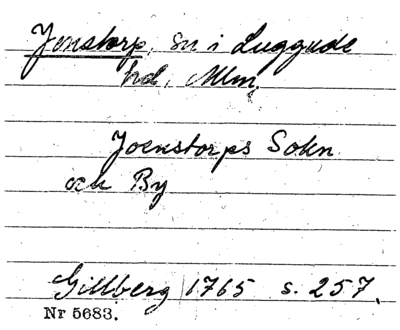 Jonstorp, sn i Luggude
hd, Mlm.
Joenstorps Sokn
och By
Gillberg 1765 s. 257.
Nr 5683.